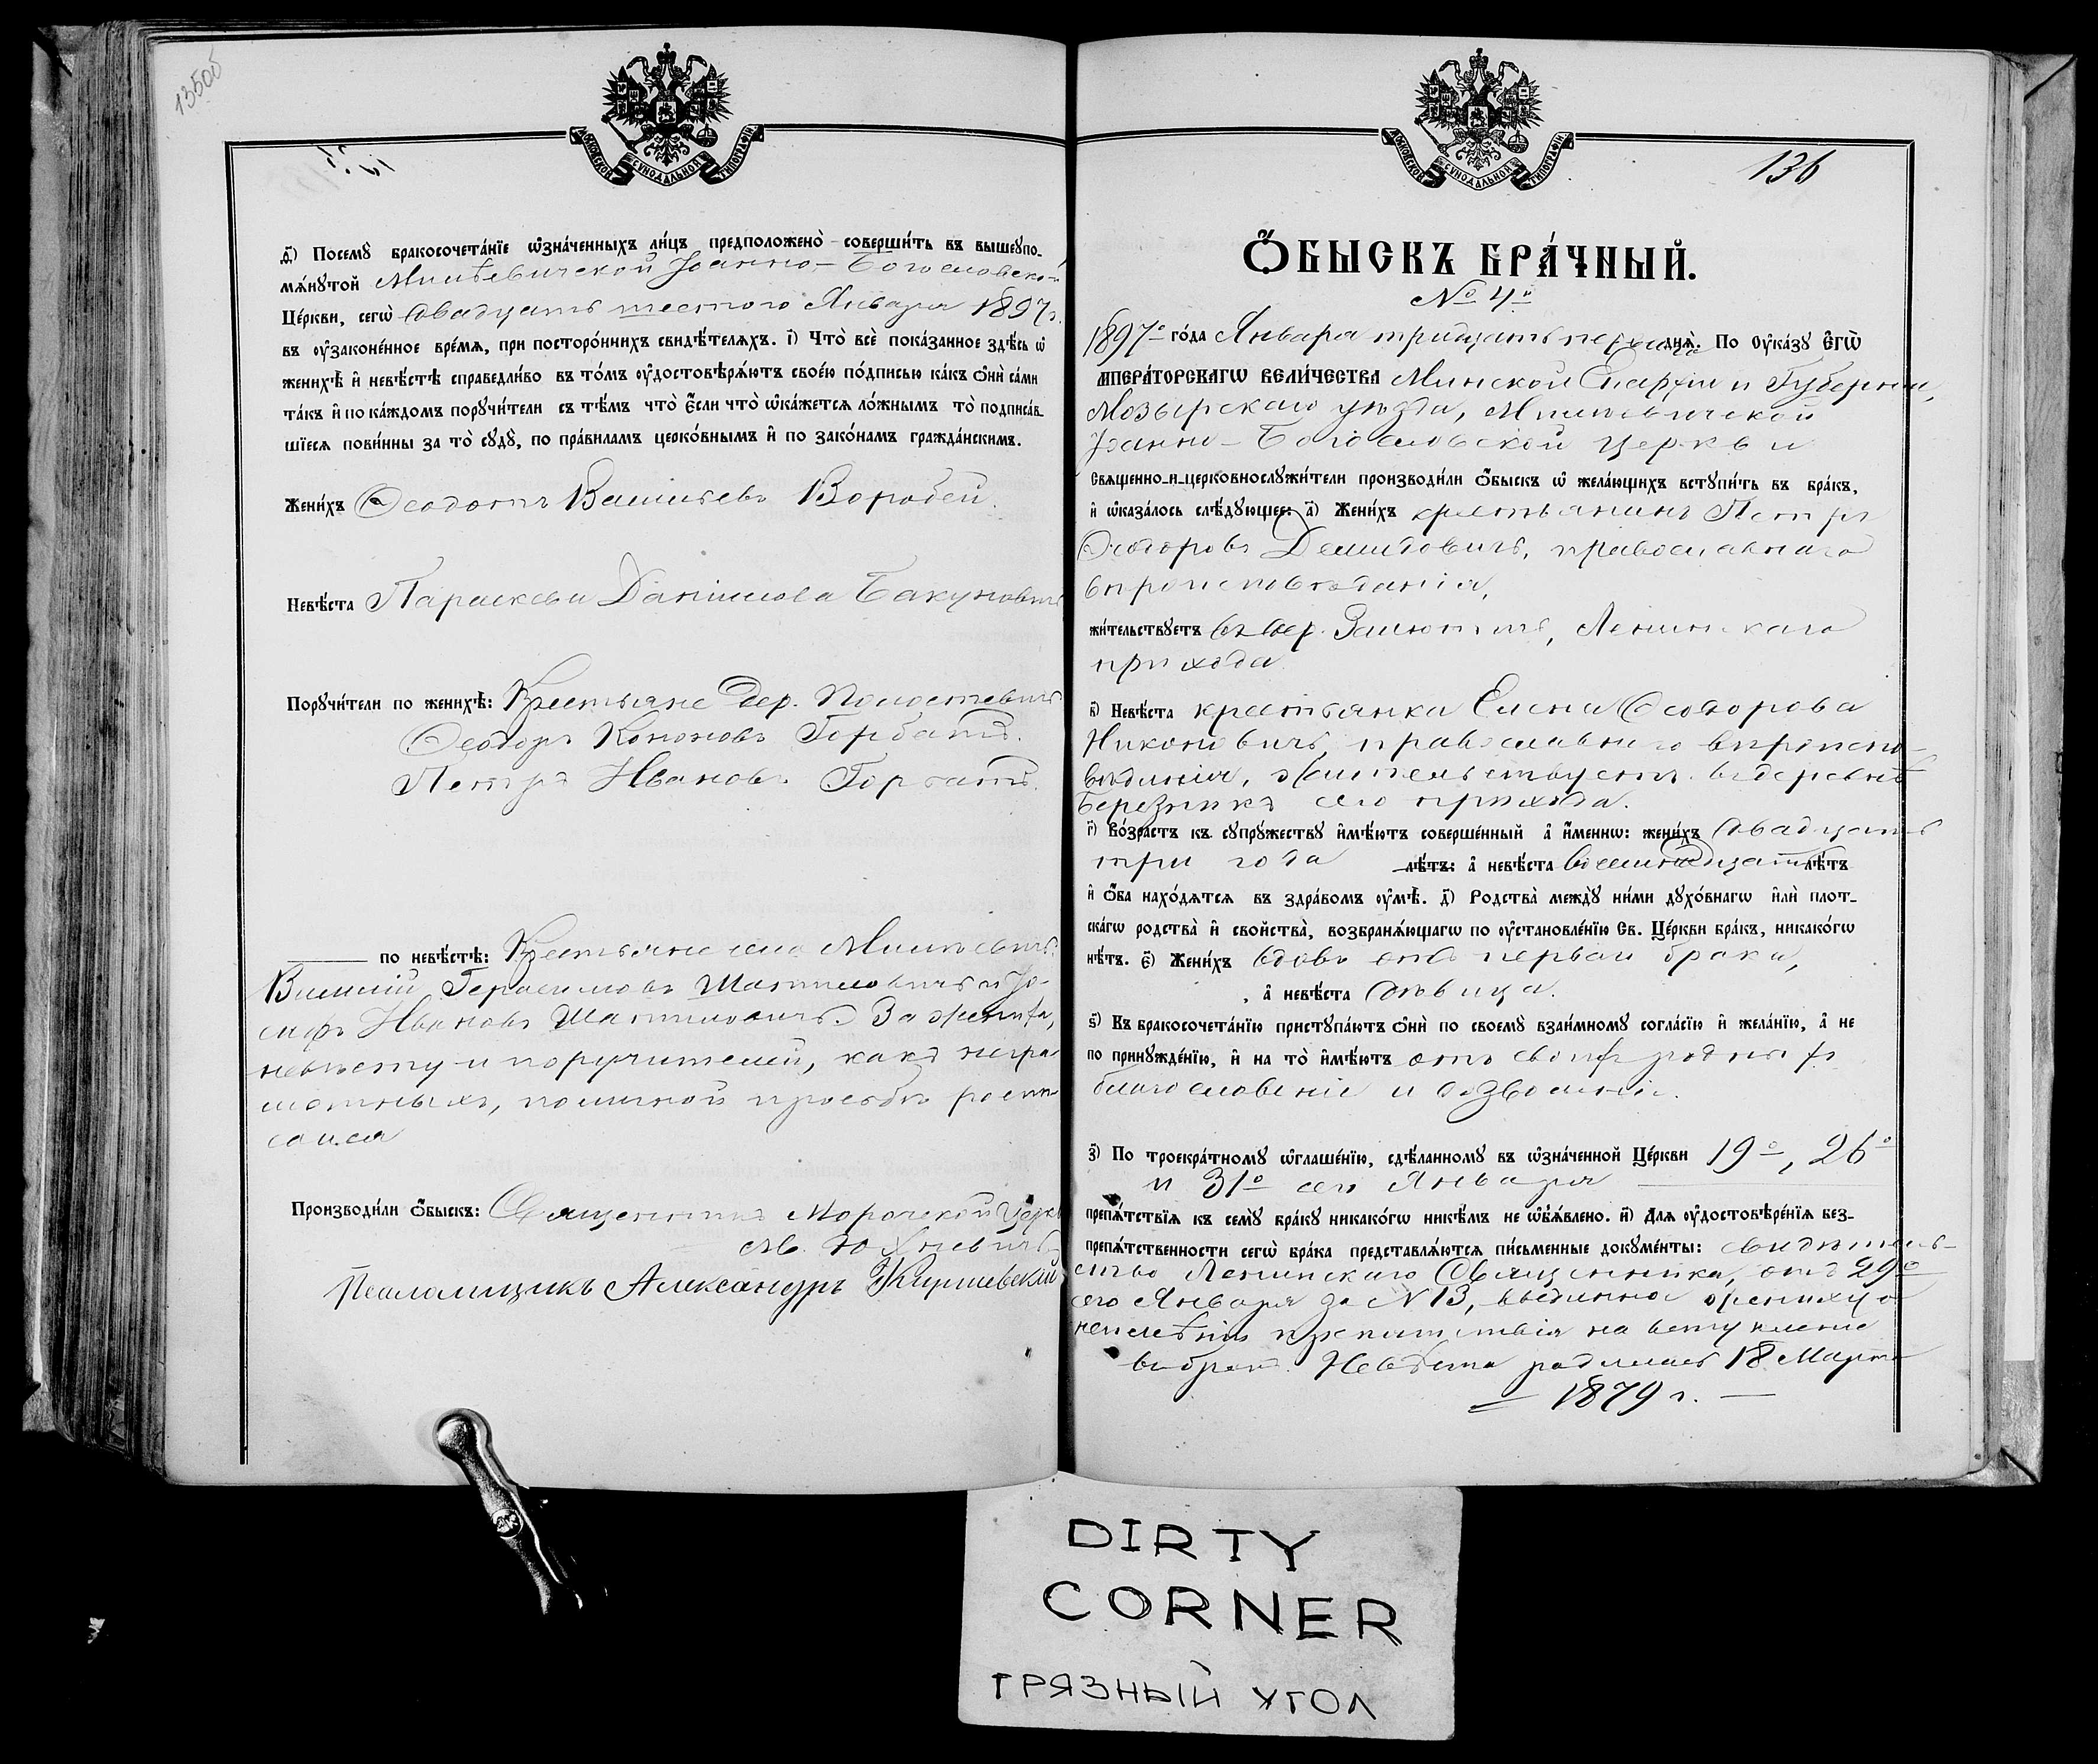 135об
МОСКОВСКОЙ СУНОДАЛЬНОЙ ТИПОГРАФІИ
д҃) Посемꙋ̀ бракосочета́нїе ѡ҆зна́ченныхъ ли́цъ предположено̀ соверши́ть въ вышеꙋпо-
мѧ́нꙋтой Милѣвичской Іоанно-Богословской
Це́ркви, сегѡ̀ двадцать шестого Января 1897 г.
въ ᲂу҆законе́нное вре́мѧ, при посторо́ннихъ свидѣ́телѧхъ. і҃) Что̀ всѐ пока́занное здѣ́сь ѡ҆
женихѣ̀ и҆ невѣ́стѣ справедли́во въ то́мъ ᲂу҆достовѣрѧ́ютъ свое́ю по́дписью ка́къ ѻ҆нѝ са́ми
та́къ и҆ по ка́ждомъ порꙋчи́тели съ тѣ́мъ что̀ є҆́сли что̀ ѡ҆ка́жется ло́жнымъ то̀ подписа́в-
шїеся пови́нны за то̀ сꙋдꙋ̀, по пра́виламъ церко́внымъ и҆ по зако́намъ гражда́нскимъ.
Жени́хъ Ѳеодотъ Васильевъ Воробей.
Невѣ́ста Параскева Даніилова Бакуновичъ
Порꙋчи́тели по женихѣ̀: Крестьяне дер.
Ѳеодоръ Кононовъ Горбатъ.
Петръ Ивановъ Горбатъ.
по невѣ́стѣ: Крестьяне села Милѣвичъ:
Василій Герасимовъ Шатиловичъ и Іо-
сифъ Ивановъ Шатиловичъ. За жениха,
невѣсту и поручителей, какъ негра-
мотныхъ, по личной просьбѣ роспи-
сался
Производи́ли ѻ҆́быскъ: Священникъ Морочской Церкви
Псаломщикъ Александръ
МОСКОВСКОЙ СУНОДАЛЬНОЙ ТИПОГРАФІИ
136
Ѻ҆́БЫСКЪ БРА́ЧНЫЙ.
№ 4й
1897го го́да Января тридцать перваго днѧ̀. По ᲂу҆ка́зꙋ Є҆гѡ̀
Мпера́торскагѡ Вели́чества Минской Епархіи и Губерніи,
Мозырскаго уѣзда, Милѣвичской
Іоанно-Богословской церкви
Священно-и-церковнослꙋжи́тели производи́ли ѻ҆́быскъ ѡ҆ жела́ющихъ встꙋпи́ть въ бра́къ,
и҆ ѡ҆каза́лось слѣ́дꙋющее: а҃) Жени́хъ крестьянинъ Петръ
Ѳеодоровъ Демидовичъ, православнаго
вѣроисповѣданія,
жи́тельствꙋетъ въ дер. Залютичъ, Ленинскаго
прихода
в҃) Невѣ́ста крестьянка Елена Ѳеодорова
Никоновичъ, православнаго вѣроиспо-
вѣданія, жительствуетъ въ деревнѣ
Березнякѣ сего прихода.
г҃) Во́зрастъ къ сꙋпрꙋ́жествꙋ и҆мѣ́ютъ соверше́нный а҆̀ и҆́менно: жени́хъ двадцать
три года лѣ́тъ: а҆̀ невѣ́ста восемнадцать лѣ́тъ
и҆ ѻ҆́ба нахо́дятся въ здра́вомъ ᲂу҆мѣ̀. д҃) Родства̀ междꙋ̀ ни́ми дꙋхо́внагѡ и҆лѝ плот-
ска́гѡ родства̀ и҆ сво́йства̀, возбранѧ́ющагѡ по ᲂу҆становле́нїю Св. Це́ркви бра́къ, никако́гѡ
нѣ́тъ. є҃) Жени́хъ вдовъ отъ первого брака,
, а҆̀ невѣ́ста дѣвица.
ѕ҃) Къ бракосочета́нїю пристꙋпа́ютъ ѻ҆нѝ по своемꙋ̀ взаи́мномꙋ согла́сїю и҆ жела́нїю, а҆̀ не
по принꙋжде́нїю, и҆ на то̀ и҆мѣ́ютъ отъ своихъ родныхъ
благословеніе и дозволеніе.
з҃) По троекра́тномꙋ ѡ҆глаше́нїю, сдѣ́ланномꙋ въ ѡ҆зна́ченной Це́ркви 19го, 26го
и 31го сего Января
препѧ́тствїя къ семꙋ̀ бра́кꙋ никако́гѡ никѣ́мъ не ѡ҆б̾ѧ́влено. и҃) Для ᲂу҆достовѣре́нїя без-
препѧ́тственности сегѡ̀ бра́ка представлѧ́ются пи́сьменные докꙋме́нты: свидѣтель-
ство Ленинскаго Священника, отъ 29го
сего Января за № 13, выданное жениху о
неимѣніи препятствія на вступленіе
въ бракъ. Невѣста родилась 18 Марта
1879 г.
DIRTY
CORNER
ГРЯЗНЫЙ УГОЛ